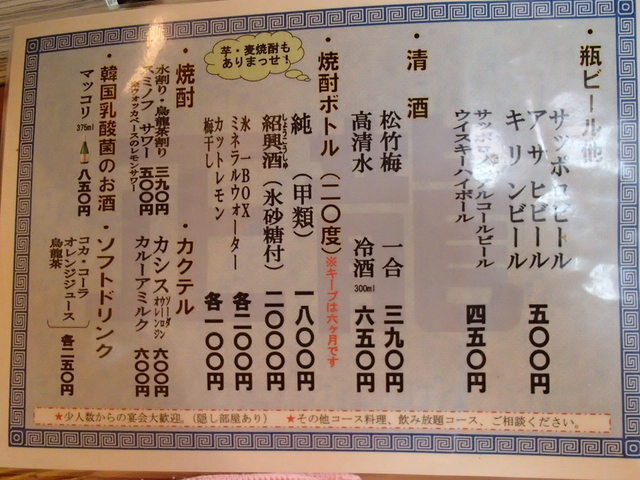 ・瓶ビール他
サッポロビール
アサヒビール
キリンビール 五〇〇円
サッポロノンアルコールビール
ウイスキーハイボール 四五〇円
・清酒
松竹梅 一合 三九〇円
高清水 冷酒 300ml 六五〇円
・焼酎ボトル(二〇度)※キープは六ヶ月です
純(甲類) 一八〇〇円
しょうこうしゅ
紹興酒(氷砂糖付) 二〇〇〇円
氷 一BOX
ミネラルウォーター 各二〇〇円
カットレモン
梅干し 各一〇〇円
芋・麦焼酎も
ありまっせ!
・焼酎
水割り・烏龍茶割り 三九〇円
スミノフ サワー 五〇〇円
ウォッカベースのレモンサワー
・カクテル
カシス ソーダ ウーロン オレンジ 六〇〇円
カルーアミルク 六〇〇円
・韓国乳酸菌のお酒
マッコリ 375ml 八五〇円
・ソフトドリンク
コカ・コーラ
オレンジジュース
烏龍茶 各二五〇円
★少人数からの宴会大歓迎。(隠し部屋あり) ★その他コース料理、飲み放題コース、ご相談ください。